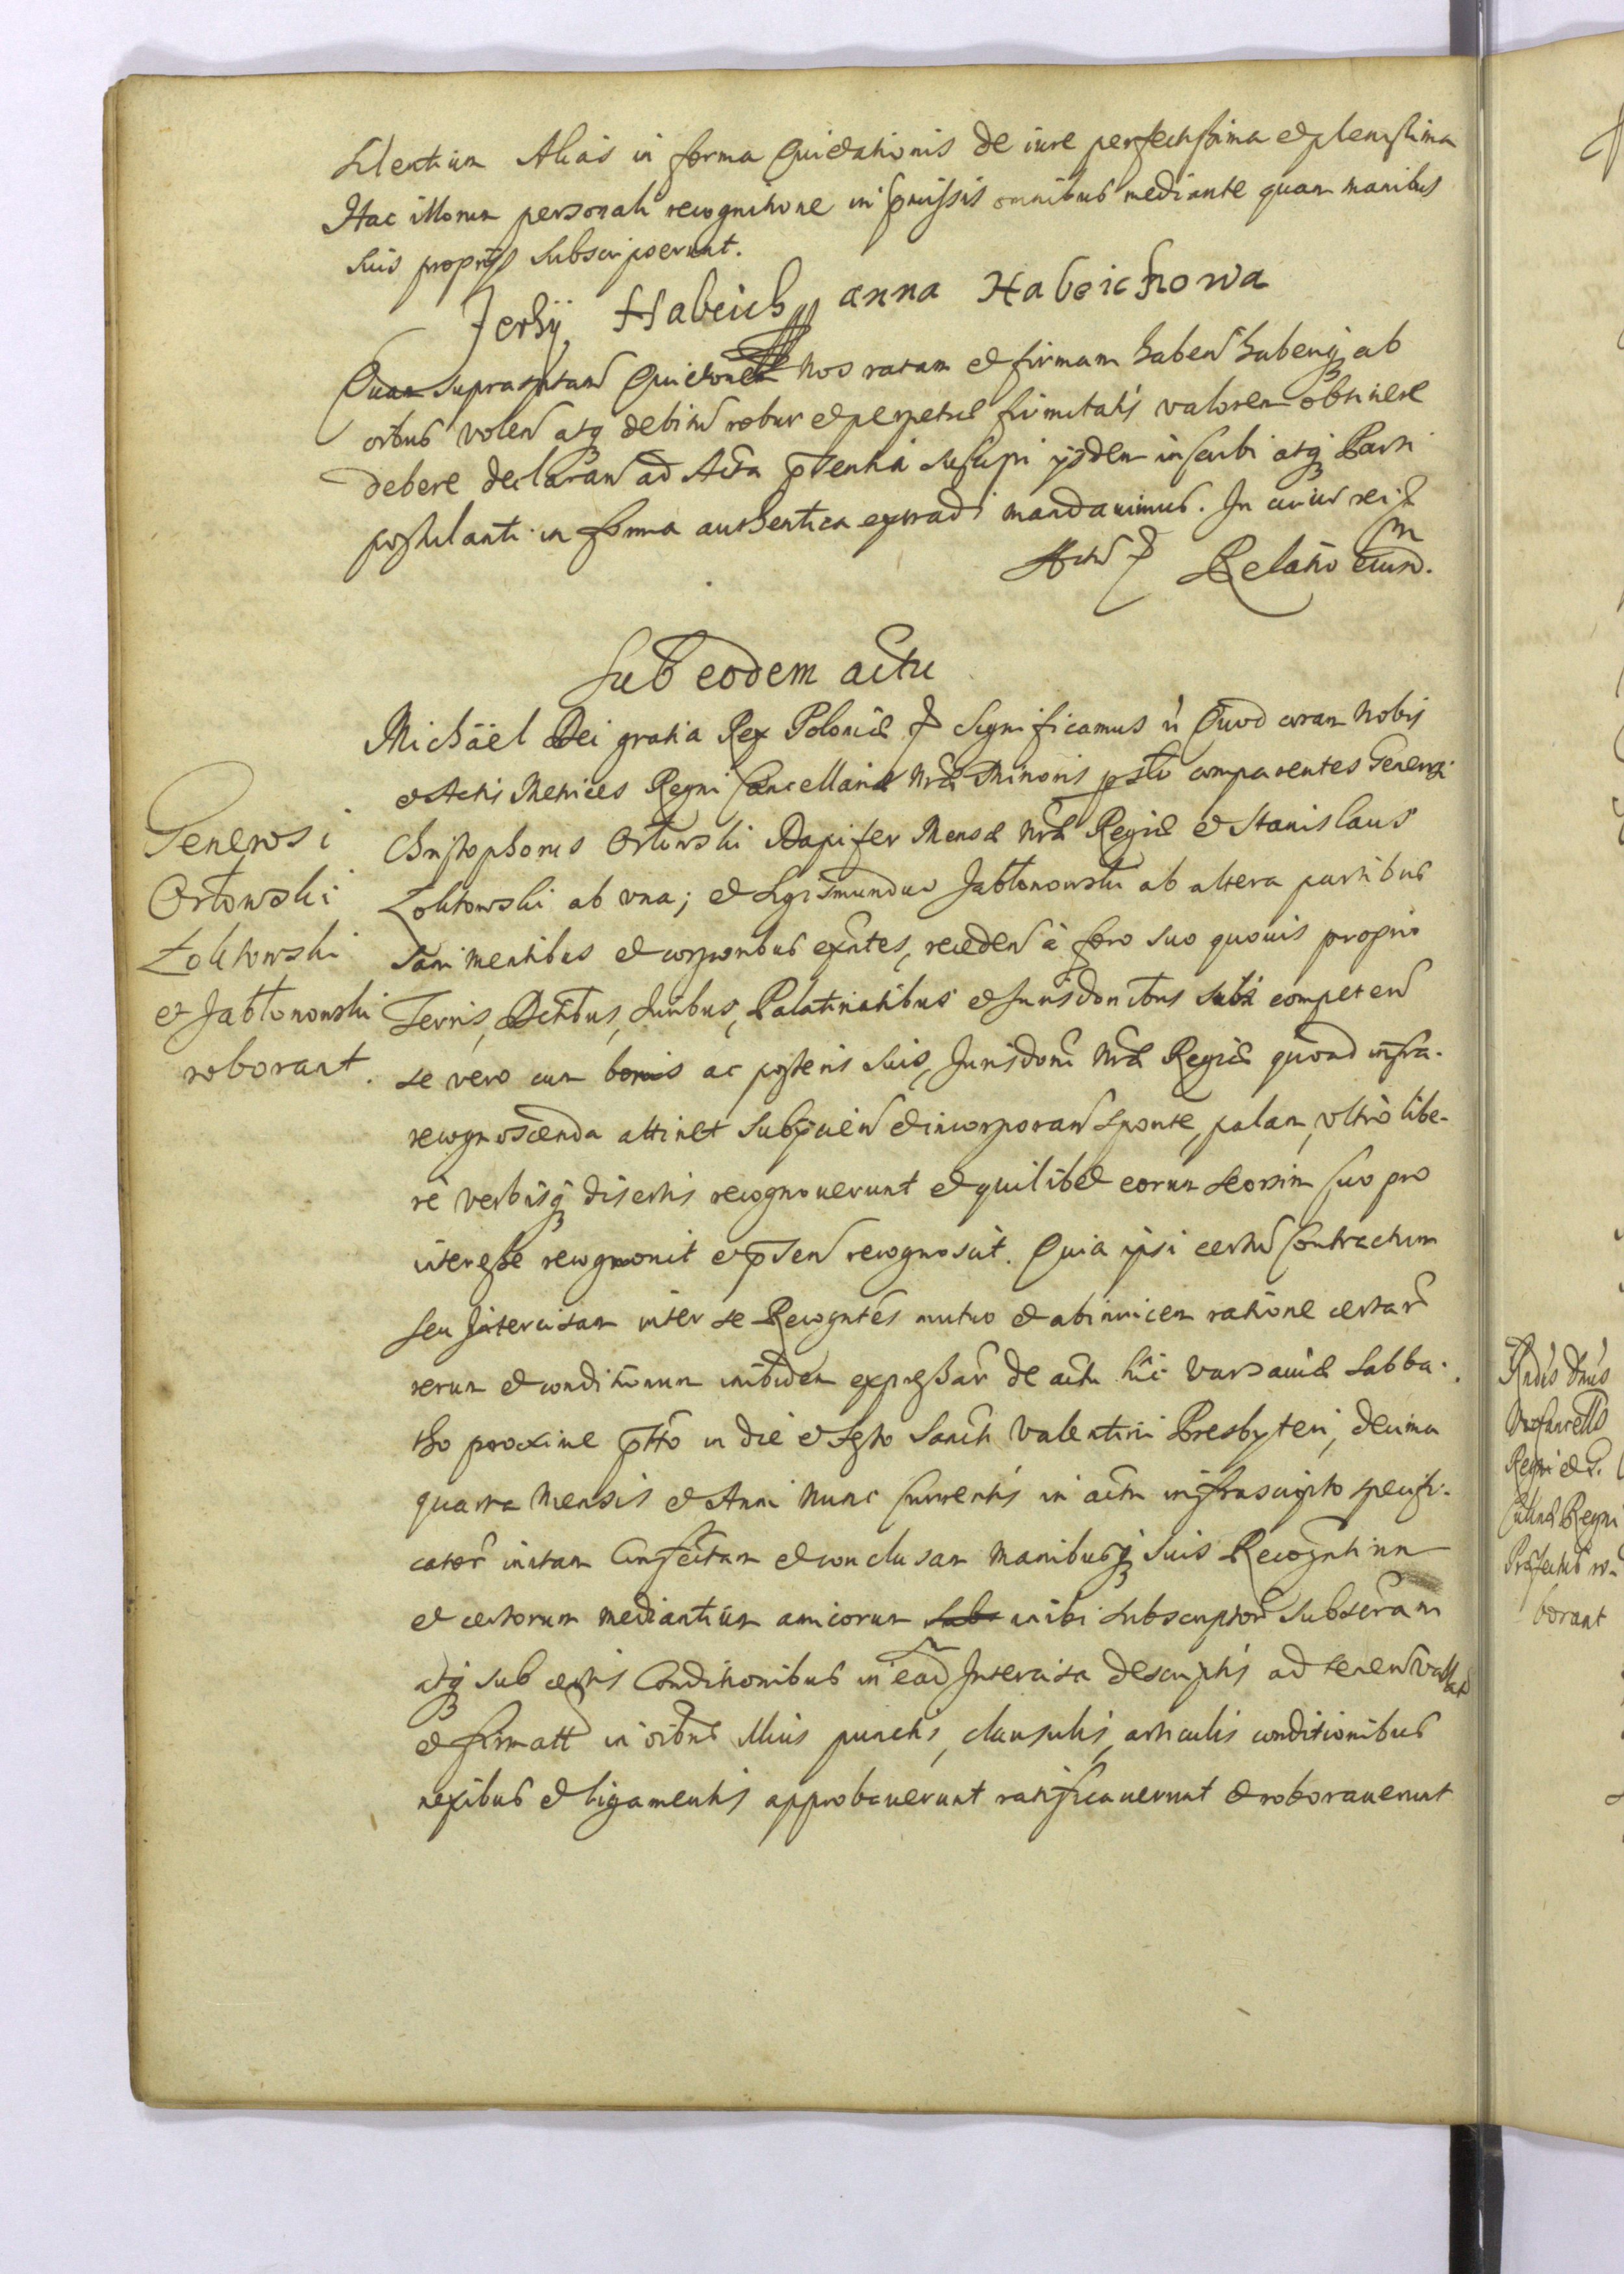 silentium Alias in forma Quietationis de iure perfectissima et plenissima
Hac illorum personali recognitione in pmissis omnibus mediante quam manibus
suis proprijs subscripserunt.
Jerzÿ Habeich anna Habeichowa
Quam supraptam Quietonem Nos ratam et firmam haben haberiq ab
oibus volen atq debitu robur et perpetuæ firmitatis valorem obtinere
debere declaran ad Acta pntia suscipi ijsdem inscribi atq Parti
postulanti in forma authentica extradi mandauimus. In cuius rei
Actu Relatio eiusd.
Sub eodem actu
Michäel Dei gratia Rex Poloniæ Significamus Quod coram Nobis
et Actis Metrices Regni Cancellariæ Nræ Minoris psto comparentes Generosi
Christophorus Orłowski Dapifer Mensæ Nræ Regiæ et Stanislaus
Zolitowski ab vna; et Sigismundus Jabłonowski ab altera partibus
Sani mentibus et corporibus exntes, receden à foro suo quouis proprio
Terris, Dctibus, Iuribus, Palatinatibus et Iurisdonibus sibi competen
se vero cum bonis ac posteris suis, Jurisdoni Nræ Regiæ quoad infra-
recognoscenda attinet subijcien et incorporan sponte, palam, vltrò libe-
rè verbisq disertis recognouerunt et quilibet eorum seorsim suo pro
interesse recognouit et pnsen recognoscit. Quia ipsi certu Contractum
seu Intercisam inter se Recogntes mutuo et ab inuicem ratione certar
rerum et conditionum inibidem expressar de actu hic Varsauiæ Sabba-
tho proxime ptto in die et festo Sancti Valentini Presbyteri, decima
quarta Mensis et Anni Nunc currentis in actu infrascripto specifi-
cator initam Confectam et conclusam Manibusq suis Recogntium
et certorum mediantiũm amicorum inibi subscriptor subscram
atq sub certis Conditionibus in ead Intercisa descriptis ad tenen
et firmatt in oibus illius punctis, clausulis, articulis conditionibus
nexibus et ligamentis approbauerunt ratificauerunt et roborauerunt
Generosi
Orłowski
Zolitowski
et Jabłonowski
roborant.
Regni et S.
Regni
borant